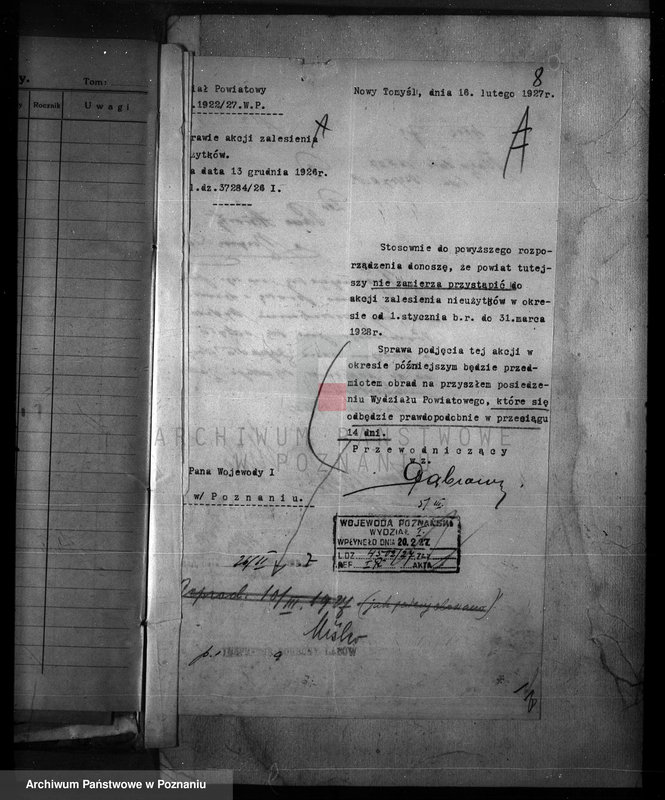 y.
Tom:
y Rocznik Uwagi
8
iał Powiatowy
Nowy Tomyśl, dnia 16. lutego 1927r.
.1922/27.W.P.
rawie akcji zalesienia
żytków.
a data 13 grudnia 1926r.
l.dz.37284/26 I.
Stosownie do powyższego rozpo-
rządzenia donoszę, że powiat tutej-
szy nie zamierza przystąpić do
akcji zalesienia nieużytków w okre-
sie od 1.stycznia b.r. do 31.marca
1928r.
Sprawa podjęcia tej akcji w
okresie późniejszym będzie przed-
miotem obrad na przyszłem posiedze-
niu Wydziału Powiatowego, które się
odbędzie prawdopodobnie w przeciągu
14 dni.
Przewodniczący
wz.
Pana Wojewody I
w/ Poznaniu.
WOJEWODA POZNAŃSKI
WYDZIAŁ I.
WPŁYNĘŁO DNIA 20.2.27.
L.DZ. ZŁ.
REF. AKTA
26/II
10/III. 1927
ARCHIWUM PAŃSTWOWE
W POZNANIU
Archiwum Państwowe w Poznaniu